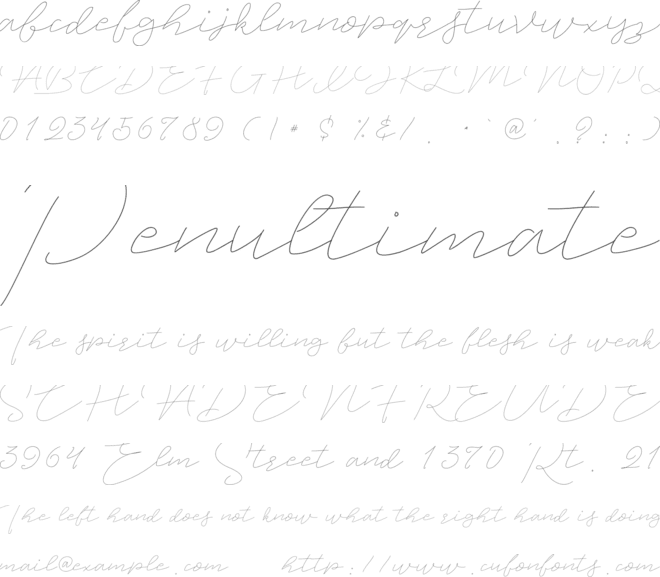 abcdefghijklmnopqrstuvwxyz
ABCDEFGHIJKLMNOPQ
0123456789 ( ) # $ % & / . · ' @ ' . ? : , )
Penultimate
The spirit is willing but the flesh is weak
SCHADENFREUDE
3964 Elm Street and 1370 Rt. 21
The left hand does not know what the right hand is doing
mail@example.com http://www.cufonfonts.com